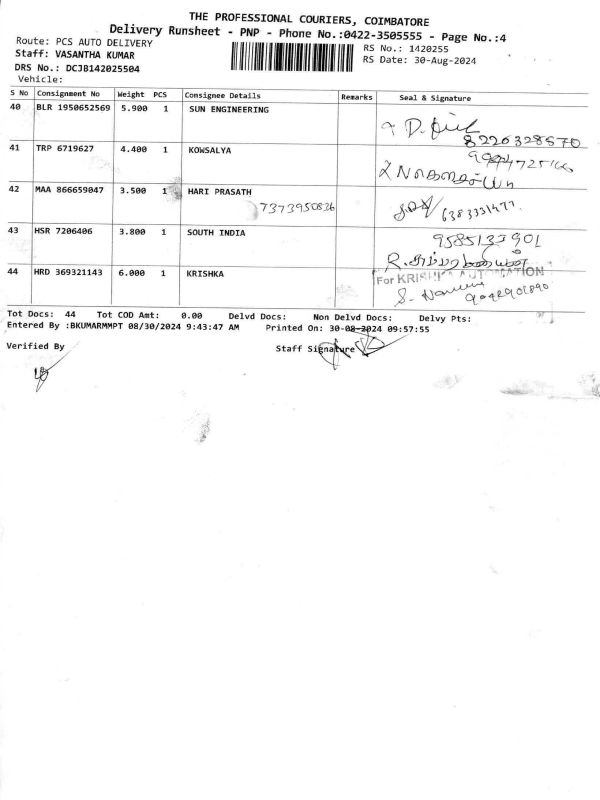 THE PROFESSIONAL COURIERS, COIMBATORE
Delivery Runsheet - PNP - Phone No.:0422-3505555 - Page No.:4
Route: PCS AUTO DELIVERY
RS No.: 1420255
Staff: VASANTHA KUMAR
RS Date: 30-Aug-2024
DRS No.: DCJB142025504
Vehicle:
S No Consignment No Weight PCS Consignee Details Remarks Seal & Signature
40 BLR 1950652569 5.900 1 SUN ENGINEERING
8220328570
41 TRP 6719627 4.400 1 KOWSALYA
42 MAA 866659047 3.500 1 HARI PRASATH
7373950836
6383331477
43 HSR 7206406 3.800 1 SOUTH INDIA
9585133901
44 HRD 369321143 6.000 1 KRISHKA
For KRISHKA AUTOMATION
Tot Docs: 44 Tot COD Amt: 0.00 Delvd Docs: Non Delvd Docs: Delvy Pts:
Entered By :BKUMARMMPT 08/30/2024 9:43:47 AM Printed On: 30-08-2024 09:57:55
Verified By
Staff Signature